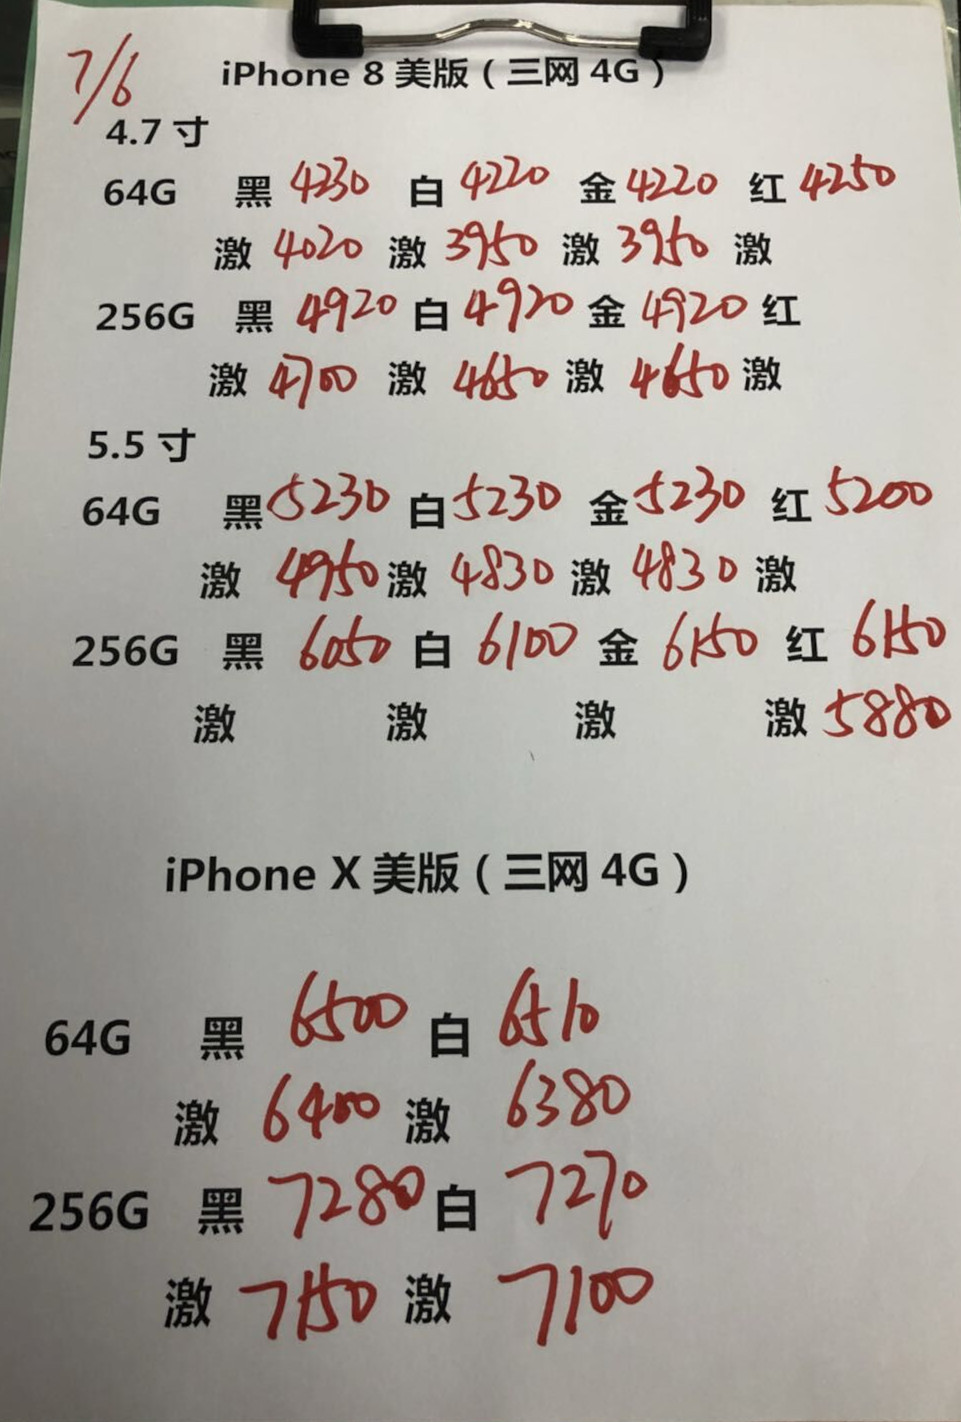 7/6
iPhone 8 美版（三网 4G）
4.7 寸
64G 黑 4230 白 4220 金 4220 红 4250
激 4020 激 3950 激 3950 激
256G 黑 4920 白 4920 金 4920 红
激 4700 激 4650 激 4650 激
5.5 寸
64G 黑 5230 白 5230 金 5230 红 5200
激 4950 激 4830 激 4830 激
256G 黑 6050 白 6100 金 6150 红 6150
激 激 激 激 5880
iPhone X 美版（三网 4G）
64G 黑 6500 白 6510
激 6400 激 6380
256G 黑 7280 白 7270
激 7150 激 7100